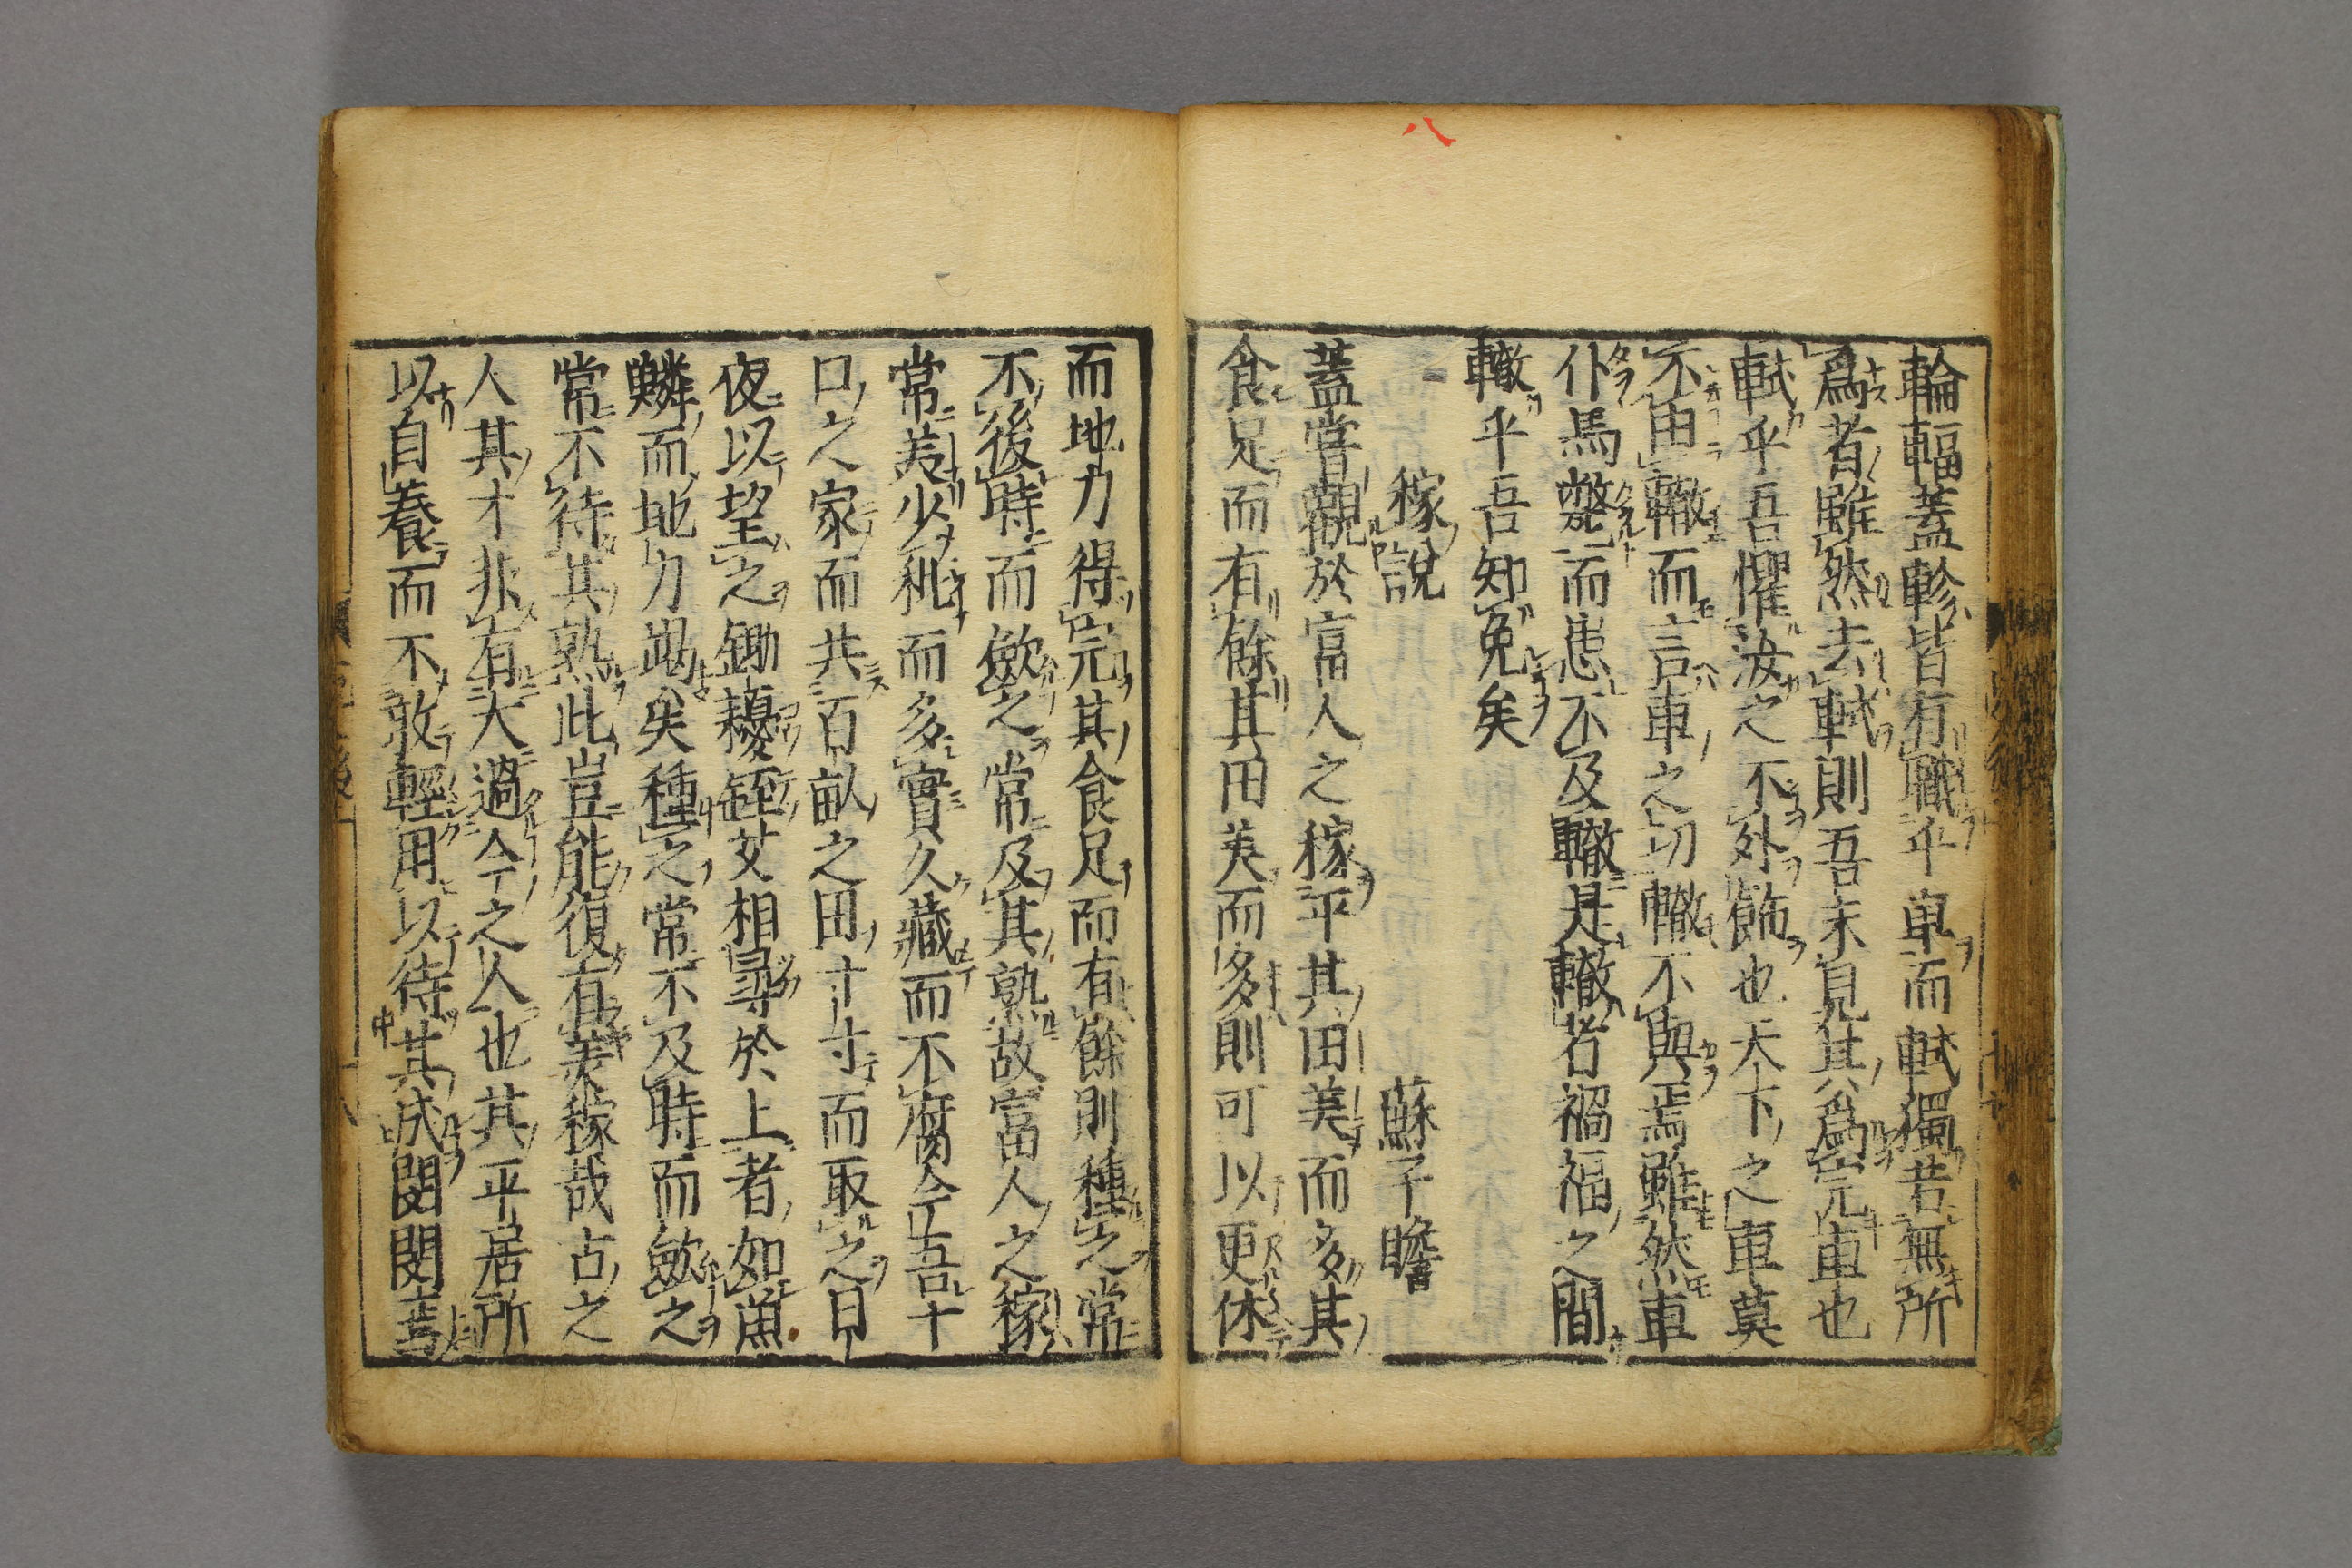 八
輪輻蓋軫皆有職乎車而軾獨若無所
爲者雖然去軾則吾未見其爲完車也
軾乎吾懼汝之不外飾也天下之車莫
不由轍而言車之功轍不與焉雖然車
仆馬斃而患不及轍是轍者禍福之間
轍乎吾知免矣
稼說 蘇子瞻
蓋嘗觀於富人之稼乎其田美而多其
食足而有餘其田美而多則可以更休
而地力得完其食足而有餘則種之常
不後時而歛之常及其熟故富人之稼
常美少秕而多實久藏而不腐今吾十
口之家而共百畝之田寸寸而取之日
夜以望之鋤耰銍艾相尋於上者如魚
鱗而地力竭矣種之常不及時而歛之
常不待其熟此豈能復有美稼哉古之
人其才非有大過今之人也其平居所
以自養而不敢輕用以待其成閔閔焉